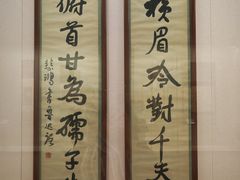 橫眉冷對千夫
俯首甘為孺子
悲鴻書魯迅